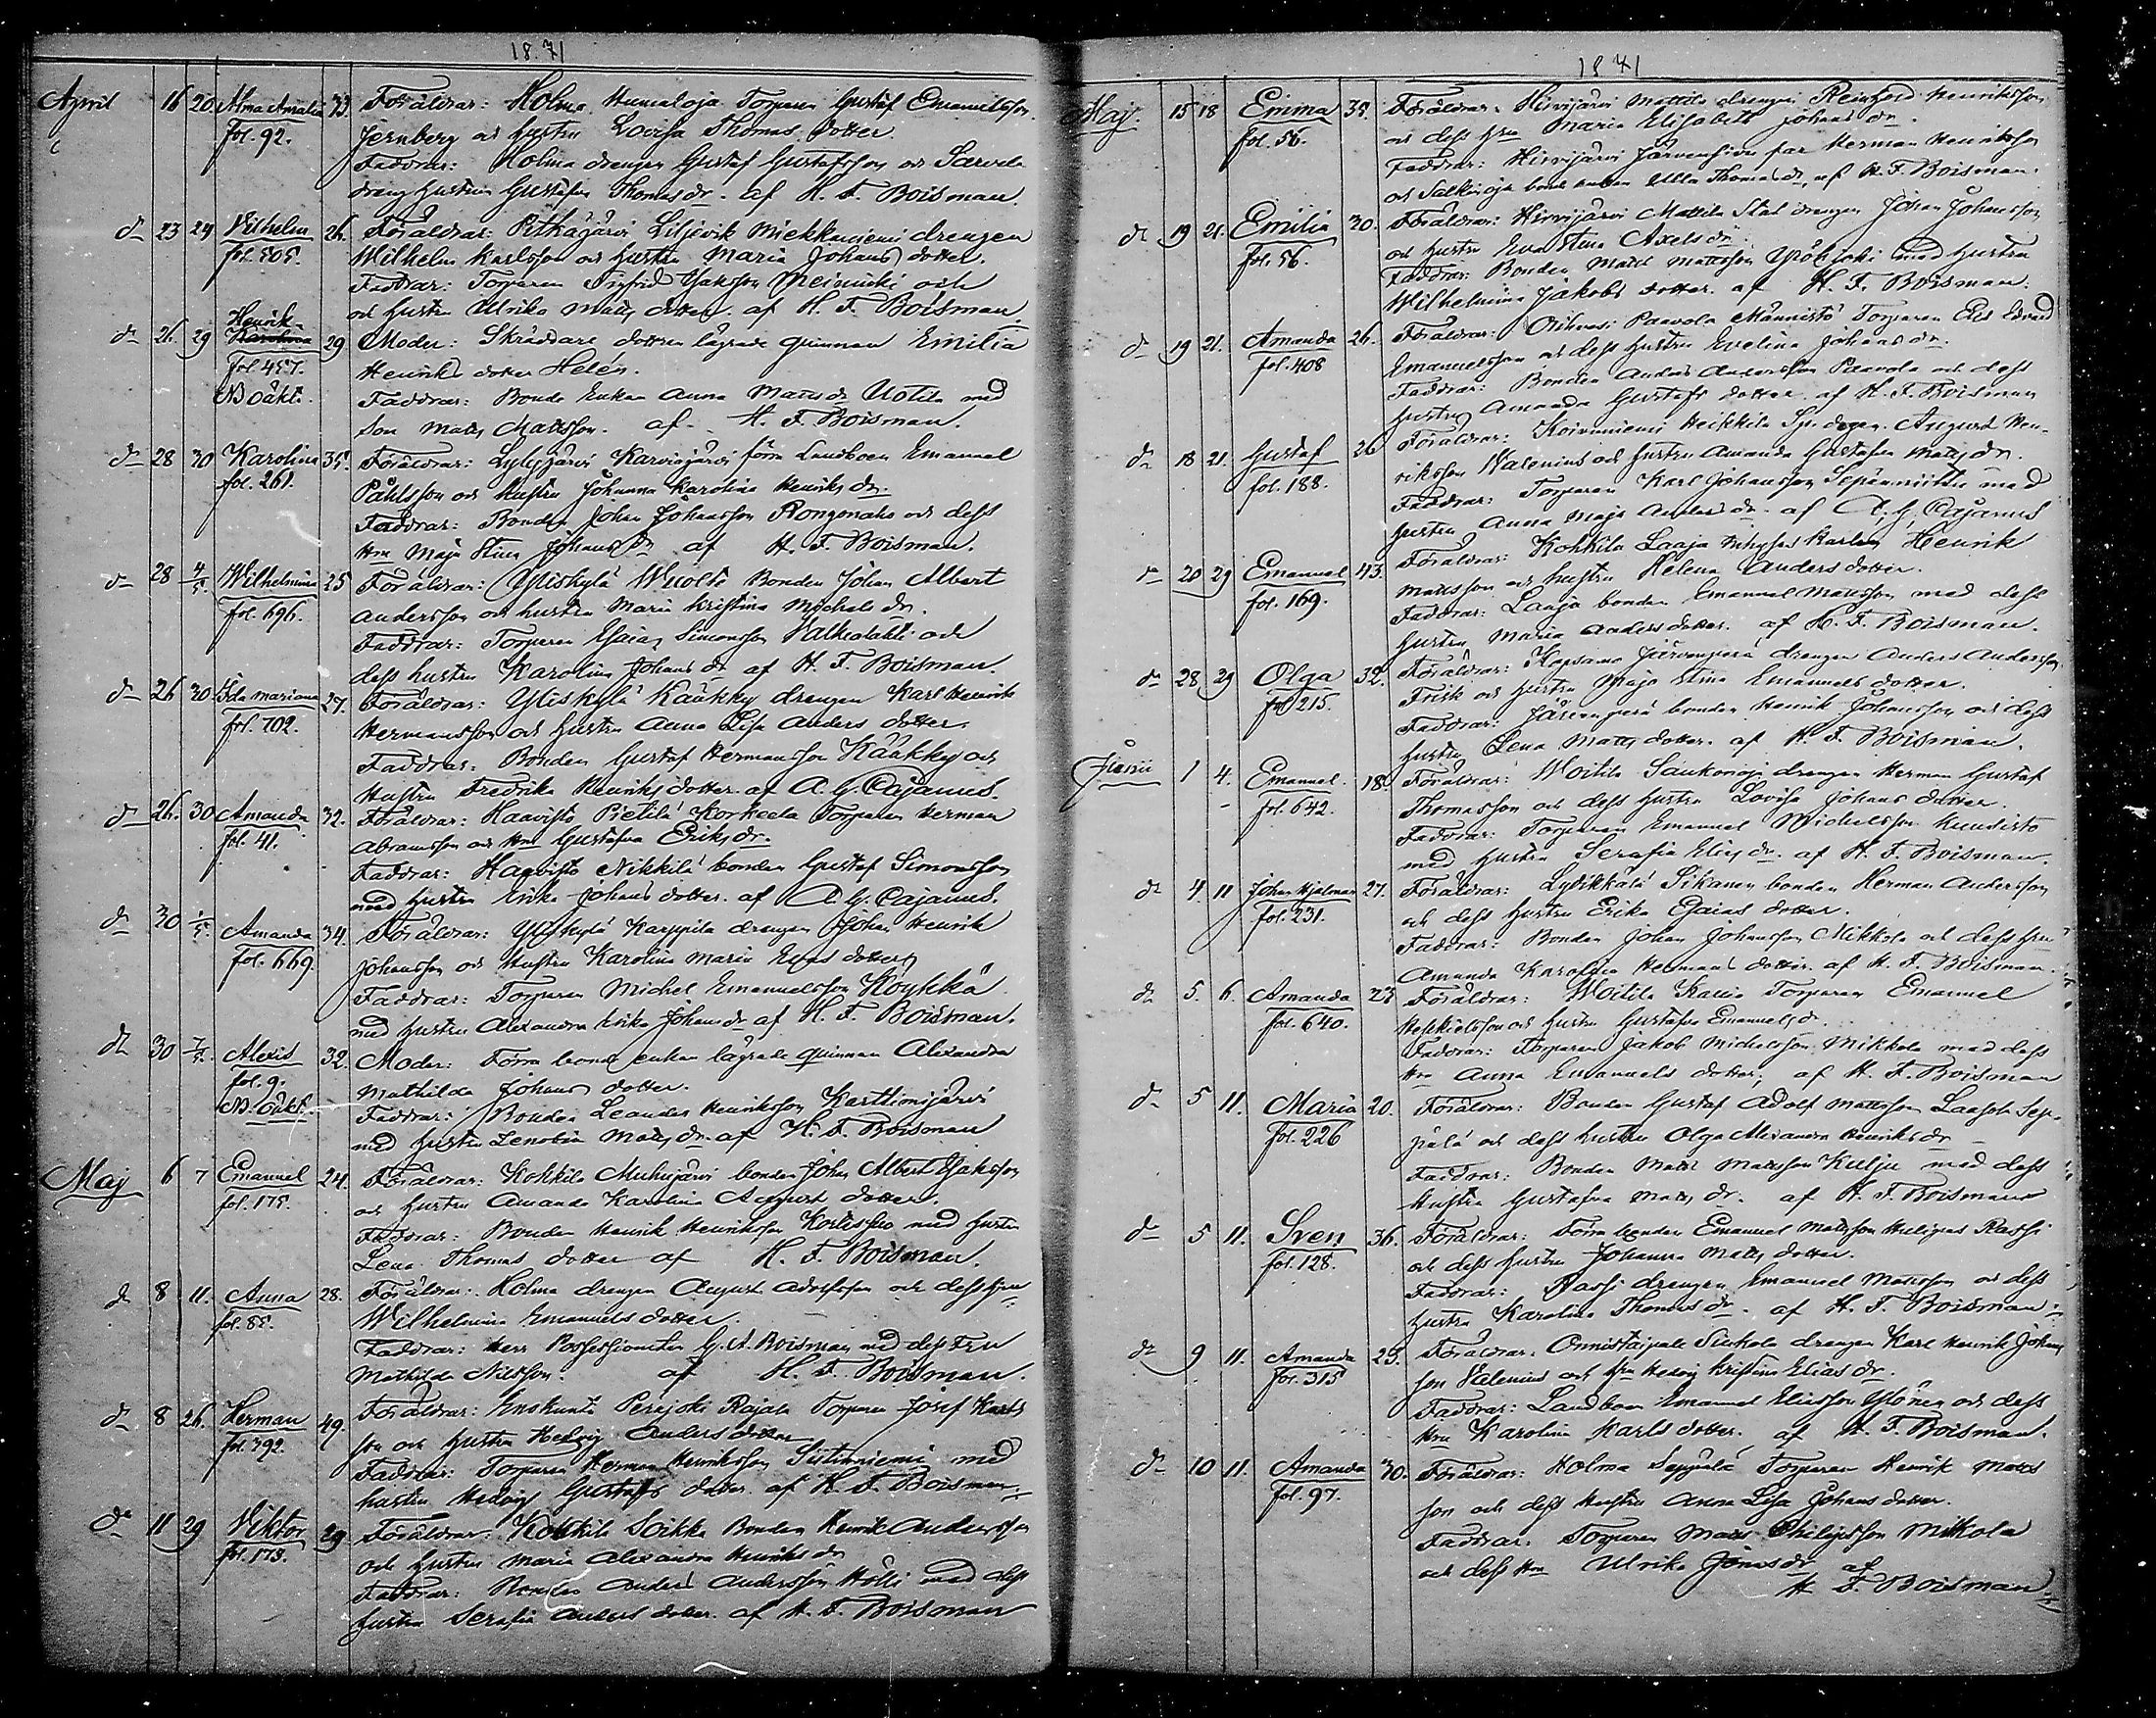 1871
April 16 20. Alma Amalia 33. Föräldrar: Holma Torparen Gustaf Emanuelsson
fol. 92. Jernberg och hustru Lovisa Thomas dotter
Faddrar: Holma drengen Gustaf Gustafsson och
dreng hustrun Gustafva Thomasdr. af H. F. Boisman.
dn 23 24 Vilhelm 26. Föräldrar: Pitkäjärvi Liljevik Miekkaniemi drengen
fol. 505. Wilhelm Karlsson och hustru Maria Johans dotter.
Faddrar: Torparen Sigfrid och
och hustru Ulrika Matts dotter. af H. F. Boisman
Henrik
dn 26. 29 Karolina 29 Moder: Skräddare dottren lägrade qvinnan Emilia
fol. 457. Henriks dotter Helén.
NB oäkt. Faddrar: Bonde Enkan Anna Mattsdr Uotila med
Son Matts Mattsson. af H. F. Boisman.
dn 28 30 Karolina 35. Föräldrar: Karviajärvi förre Landboen Emanuel
fol. 261. Påhlsson och Hustru Johanna Karolina Henriks dr.
Faddrar: Bonden Johan Johansson Rongonaho och dess
Hru Maja Stina Johans dr af H. F. Boisman.
dn 28 4/5. Wilhelmina 25 Föräldrar: Yliskylä Wuolto Bonden Johan Albert
fol. 696. Andersson och hustru Maria Kristina Michels dr.
Faddrar: Torparen Esaias Simonsson Valkealahti och
dess hustru Karolina Johans dr af H. F. Boisman.
dn 26 30. Ida Mariana 27. Föräldrar: Yliskylä Kääkky drengen Karl Henrik
fol. 702. Hermansson och hustru Anna Lisa Anders dotter.
Faddrar. Bonden Gustaf Hermansson Kääkky och
Hustru Fredrika Henriks dotter af A. G. Cajanus.
dn 26. 30 Amanda 32. Föräldrar: Haavisto Pietilä Korkeela Torparen Herman
fol. 41. Abramsson och Hru Gustafva Eriks dr.
Faddrar: Haavisto Nikkilä bonden Gustaf Simonsson
med hustru Erika Johans dotter. af A. G. Cajanus.
dn 30 /5. Amanda 34. Föräldrar: Yliskylä Karppila drengen Johan Henrik
fol. 669. Johansson och Hustru Karolina Maria Elias dotter
Faddrar: Torparen Michel Emanuelsson Köykkä
med hustru Alexandra Erika Johansdr af H. F. Boisman.
dn 30 7/5. Alexis 32. Moder: Förra bonde enkan lägrade qvinnan Alexandra
fol. 9. Mathilda Johans dotter.
NB. oäkt. Faddrar: Bonden Leander Henriksson Karttimojärvi
med hustru Zenobia Matts dr. af H. F. Boisman
Maj 6 7 Emanuel 24. Föräldrar: Kokkila Muhujärvi bonden Johan Albert Isaksson
fol. 175. och hustru Amanda Karolina August dotter.
Faddrar: Bonden Henrik Henriksson med hustru
Lena Thomas dotter af H. F. Boisman.
dn 8 11. Anna 28. Föräldrar: Holma drengen August Adolfsson och dess hru
fol. 85. Wilhelmina Emanuels dotter.
Faddrar: Herr Possessionaten G. A. Boisman med dess Fru
Mathilda Nilsson. af H. F. Boisman.
dn 8 26. Herman 49. Föräldrar: Enokunta Perejoki Rajala Torparen Josef Karls
fol. 392. son och hustru Hedvig Anders dotter
Faddrar: Torparen Herman Henriksson med
hustru Hedvig Gustafs dotter af H. F. Boisman.
dn 11 29 Viktor 29 Föräldrar: Kokkila Soikka Bonden Henrik Andersson
fol. 173. och hustru Maria Alexandra Henriks dr
Faddrar: Bonden Anders Andersson Hölli med dess
hustru Serafia Anders dotter. af H. F. Boisman
1871
Maj. 15 18 Emma 35. Föräldrar. Hirvijärvi Mattila drengen Reinhold Henriksson
fol. 56. och dess hru Maria Elisabeth Johans dr.
Faddrar: Hirvijärvi Herman Henriksson
och bonde enkan Ulla Thomas dr, af H. F. Boisman.
dn 19 21. Emilia 30. Föräldrar: Hirvijärvi Mattila Stal drengen Johan Johansson
fol. 56. och hustru Eva Stina Axels dr.
Faddrar: Bonden Matts Mattsson med hustru
Wilhelmina Jakobs dotter. af H. F. Boisman.
dn 19 21. Amanda 26. Föräldrar: Orihvesi Paavola Männistö Torparen Erik Edvard
fol. 408 Emanuelsson och dess hustru Evelina Johans dr.
Faddrar: Bonden Anders Andersson Paavola och dess
hustru Amanda Gustafs dotter. af H. F. Boisman
dn 18 21. Gustaf 26 Föräldrar: Koivuniemi Heikkilä August Hen-
fol. 188. riksson Valenius och hustru Amanda Gustafva Matts dr.
Faddrar: Torparen Karl Johansson Sepänniittu med
hustru Anna Maja Anders dr. af A. G. Cajanus
dn 20 29 Emanuel 43. Föräldrar: Kokkila Laaja Inhyses karlen Henrik
fol. 169. Mattsson och hustru Helena Anders dotter.
Faddrar: Laaja bonden Emanuel Mattsson med dess
hustru Maria Anders dotter. af H. F. Boisman.
dn 28 29 Olga 32. Föräldrar: Kopsamo Järvenperä drengen Anders Andersson
fol 215. Frisk och hustru Maja Lina Emanuels dotter.
Faddrar: Järvenperä bonden Henrik Johansson och dess
hustru Lena Matts dotter. af H. F. Boisman.
Junii 1 4. Emanuel. 18. Föräldrar: Woitila Saukonoja drengen Herman Gustaf
fol. 642. Thomasson och dess hustru Lovisa Johans dotter.
Faddrar: Torparen Emanuel Michelsson Kuusisto
med hustru Serafia Elias dr. af H. F. Boisman.
dn 4. 11 Johan Hjalmar 27. Föräldrar: Lydikkälä Sikanen bonden Herman Andersson
fol. 231. och dess hustru Erika Esaias dotter.
Faddrar: Bonden Johan Johansson Mikkola och dess hru
Amanda Karolina Hermans dotter. af H. F. Boisman.
dn 5. 6. Amanda 27 Föräldrar: Woitila Torparen Emanuel
fol. 640. Heskielsson och hustru Gustafva Emanuels dr.
Faddrar: Torparen Jakob Michelsson Mikkola med dess
Hru Anna Emanuels dotter, af H. F. Boisman
dn 5 11. Maria 20. Föräldrar: Bonden Gustaf Adolf Mattsson Laasola Sep-
fol. 226 pälä och dess hustru Olga Alexandra Henriks dr
Faddrar: Bonden Matts Mattsson Kulju med dess
Hustru Gustafva Matts dr. af H. F. Boisman
dn 5 11. Sven 36. Föräldrar: Förra bonden Emanuel Mattsson Passi
fol. 128. och dess hustru Johanna Matts dotter.
Faddrar: Passi drengen Emanuel Mattsson och dess
hustru Karolina Thomas dr. af H. F. Boisman.
dn 9 11. Amanda 23. Föräldrar. Onnistaipale Siukola drengen Karl Henrik Johans
fol. 315 son Valenius och Hru Hedvig Kristina Elias dr.
Faddrar: Landboen Emanuel Eliasson Ylönen och dess
Hru Karolina Karls dotter. af H. F. Boisman.
dn 10 11. Amanda 30. Föräldrar: Holma Seppälä Torparen Henrik Matts
fol. 97. son och dess Hustru Anna Lisa Johans dotter.
Faddrar. Torparen Matts Philipsson Mikkola
och dess Hru Ulrika Jonas dr. af
H. F. Boisman